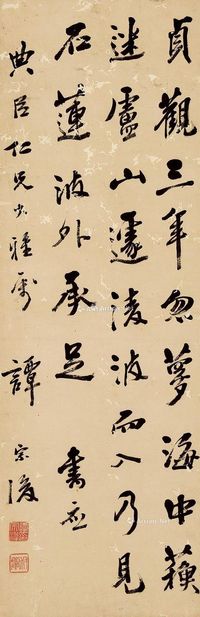 貞觀三年忽夢海中蘋
迷廬山遽淩波而入乃見
石蓮波外承足 書應
典臣仁兄大雅屬 譚
宗浚